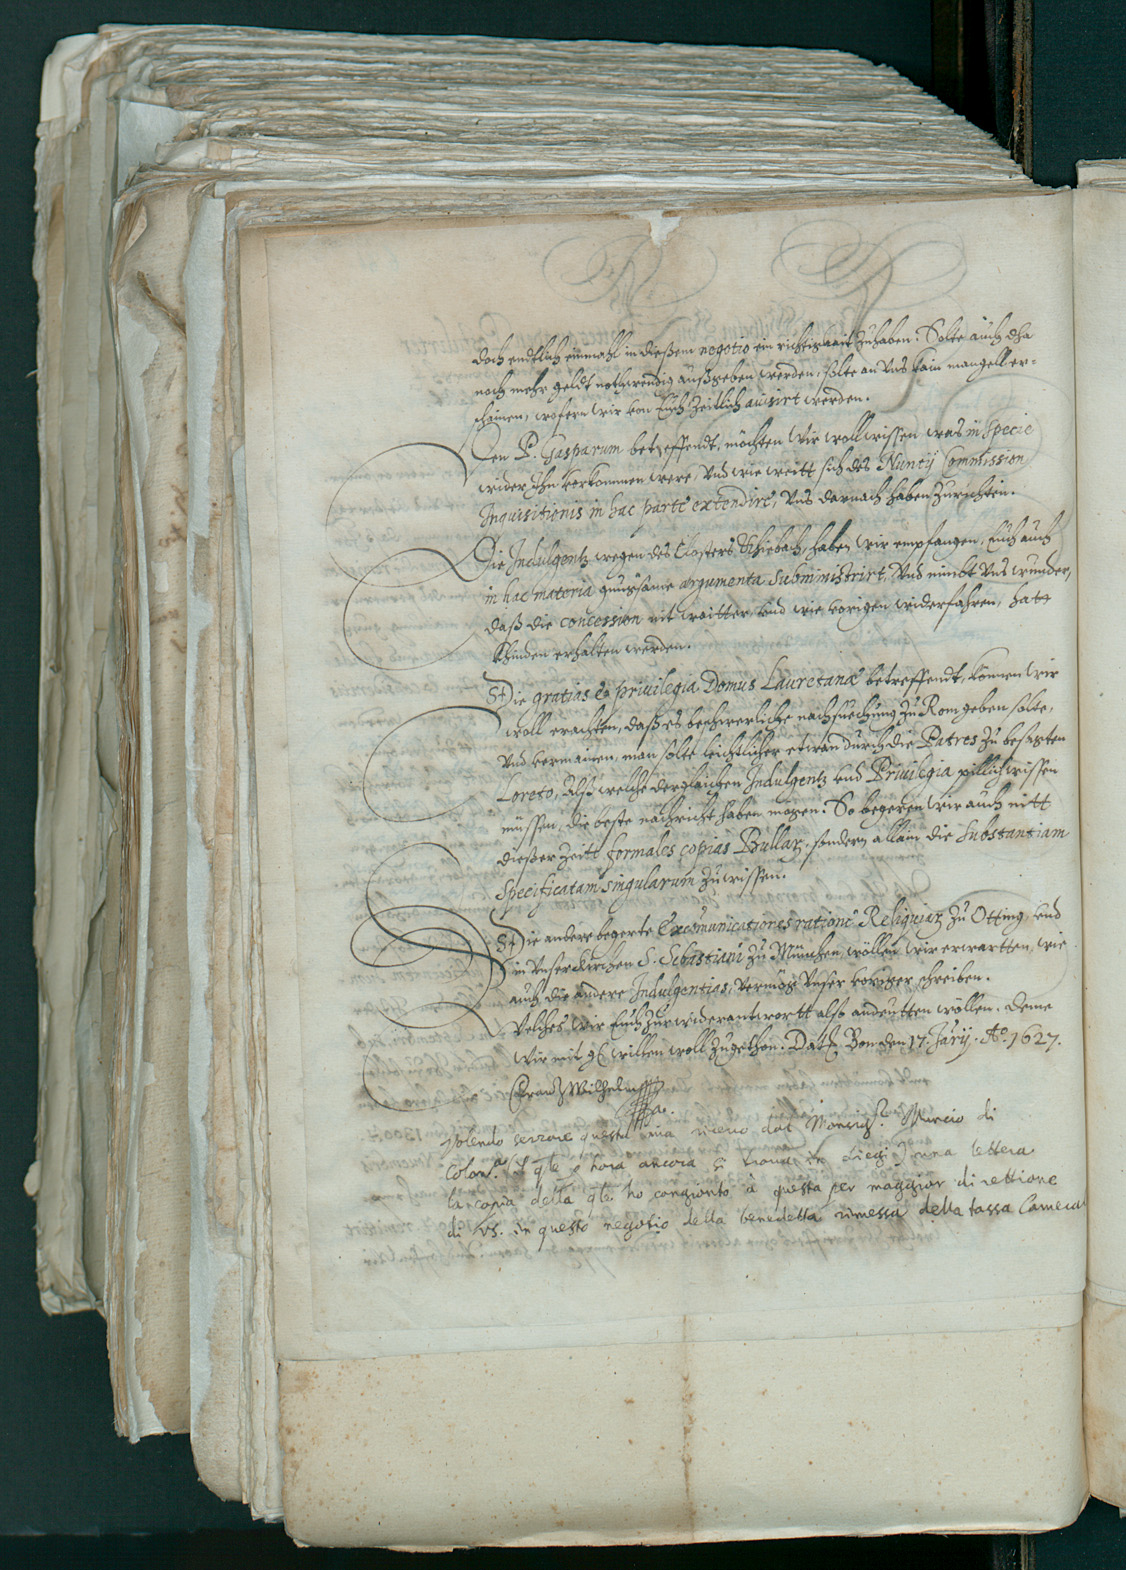 doch endtlich einmahl in dießem negotio ein richtigkait zuhaben. Solte auch dha
noch mehr geldt nothwendig außgeben werden, solte an Uns kain mangell er-
scheinen, wofern wir von Euch Zeitlich avisirt werden.
Den P. Gasparum betreffendt, möchten wir woll wissen was in specie
wider Ihn vorkommen were, Und wie weitt sich des Nuntij Commission
Inquisitionis in hac parte extendire, Uns darnach haben zurichten.
Die Indulgentz wegen des Closters haben wir empfangen, Euch auch
in hac materia gnugsame argumenta subministrirt, Und nimbt Uns wunder,
daß die concession nit weitter, und wie vorigen widerfahren, hatt
khinden erhalten werden.
Die gratias et privilegia Domus Lauretanæ betreffendt, können wir
woll erachten, daß es beschwerliche nachsuchung zu Rom geben solte,
Und vermainen, man solte leichtlicher etwan durch die Patres zu besagten
Loreto, alß welche dergleichen Indulgentz und Privilegia pillich wissen
müssen, die beste nachricht haben mögen. So begeren wir auch nitt
dießer Zeitt formales copias Bullar. sondern allain die substantiam
specificatam singularum zuwissen.
Die andere begerte Excommunicationes ratione Reliquiar. zu Otting und
in Unser Kirchen S. Sebastiani zu München, wöllen wir erwartten, wie
auch die andere Indulgentias, vermög Unser voriger schreiben.
Welches wir Euch zur widerantwortt also andeutten wöllen. deme
wir mit g. willen woll zugethon. Dat. Bon den 17. Jarij. Ao. 1627.
Franz Wilhelm
Volendo serrare questa mia ricevo dal Monsig.r Nuncio di
Colon.a (il qle e hora ancora si trova in Liegi) una lettera
la copia della qle ho congionto à questa per maggior direttione
di VS. in questo negotio della benedetta rimessa della tassa Camerale